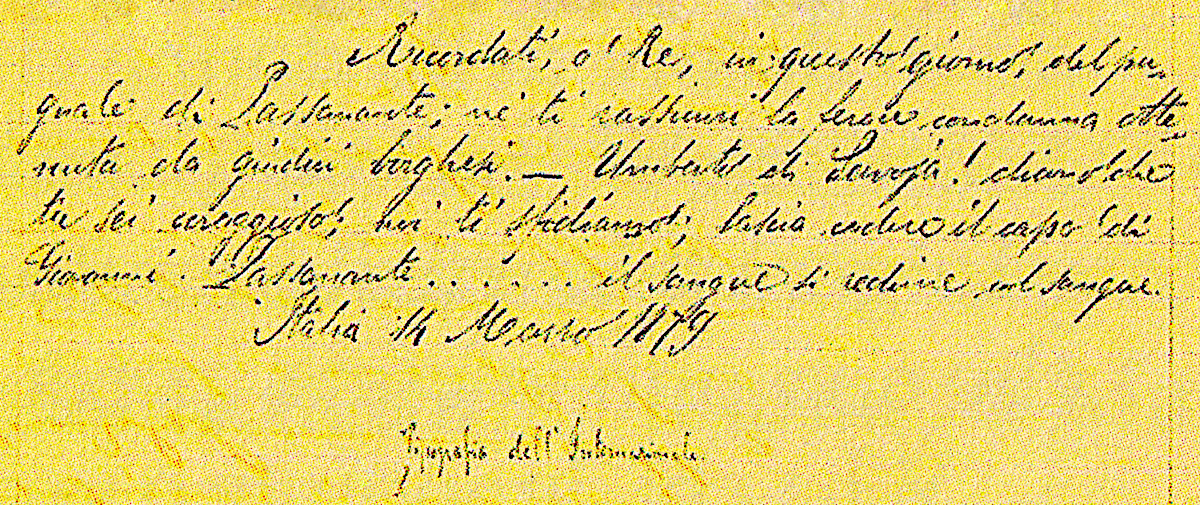 Ricordati, o' Re, in questo giorno, del pu-
gnale di Passanante; nè ti rassicuri la feroce condanna otte-
nuta da giudici borghesi. — Umberto di Savoja! dicono che
tu sei coraggioso, noi ti sfidiamo; lascia cadere il capo di
Giovanni Passanante . . . . . . il sangue si redime col sangue.
Italia 14 Marzo 1879
Tipografia dell'Internazionale.